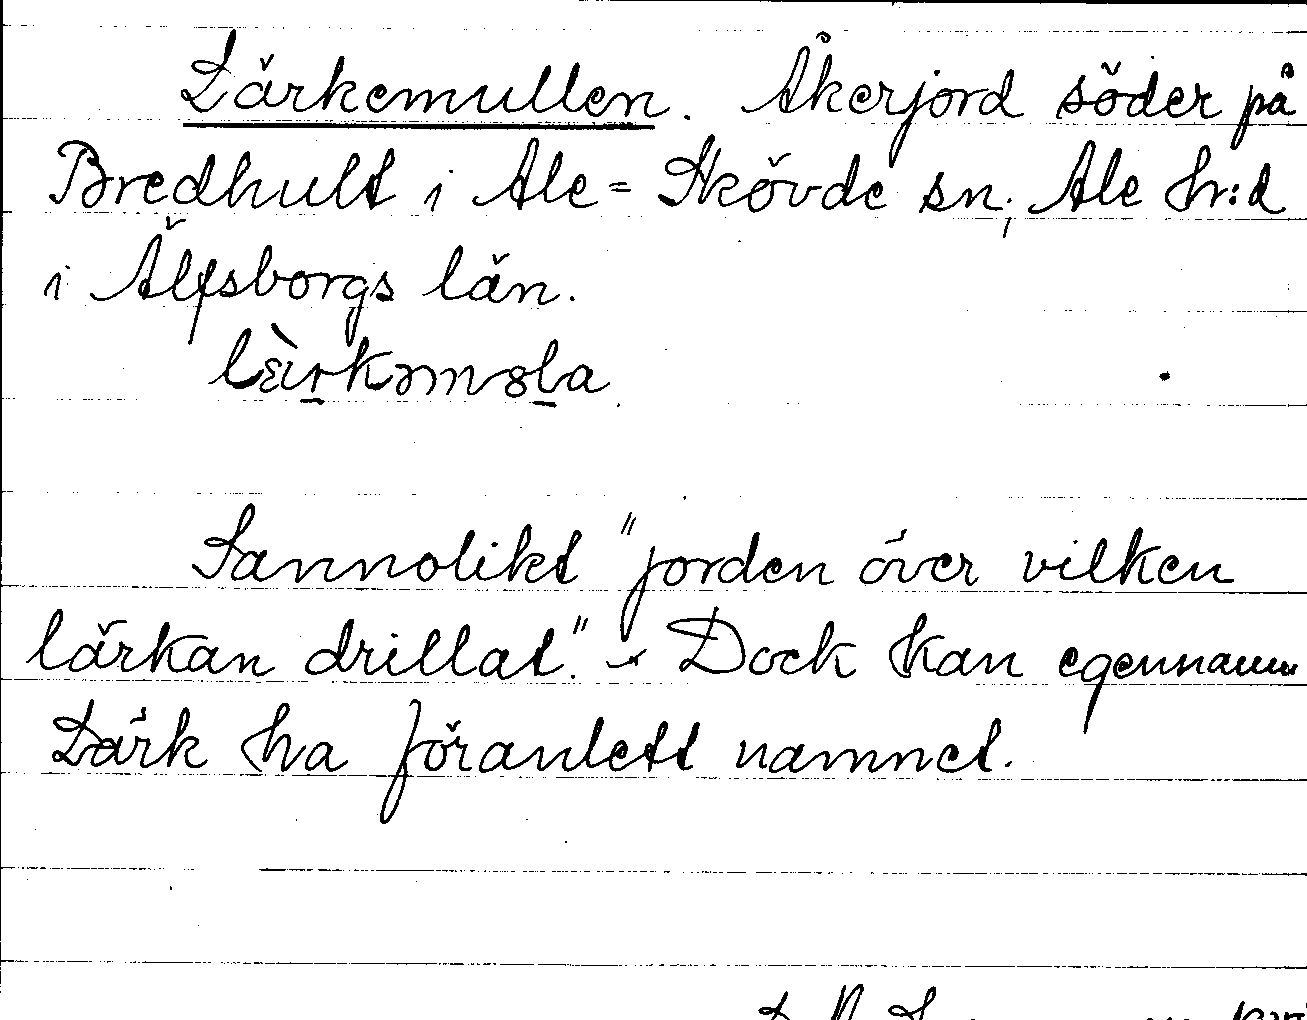 Lärkemullen. Åkerjord söder på
Bredhult i Ale-Skövde sn, Ale hr:d
i Älfsborgs län.
Sannolikt "jorden över vilken
lärkan drillat." - Dock kan egennamn
Lärk ha föranlett namnet.